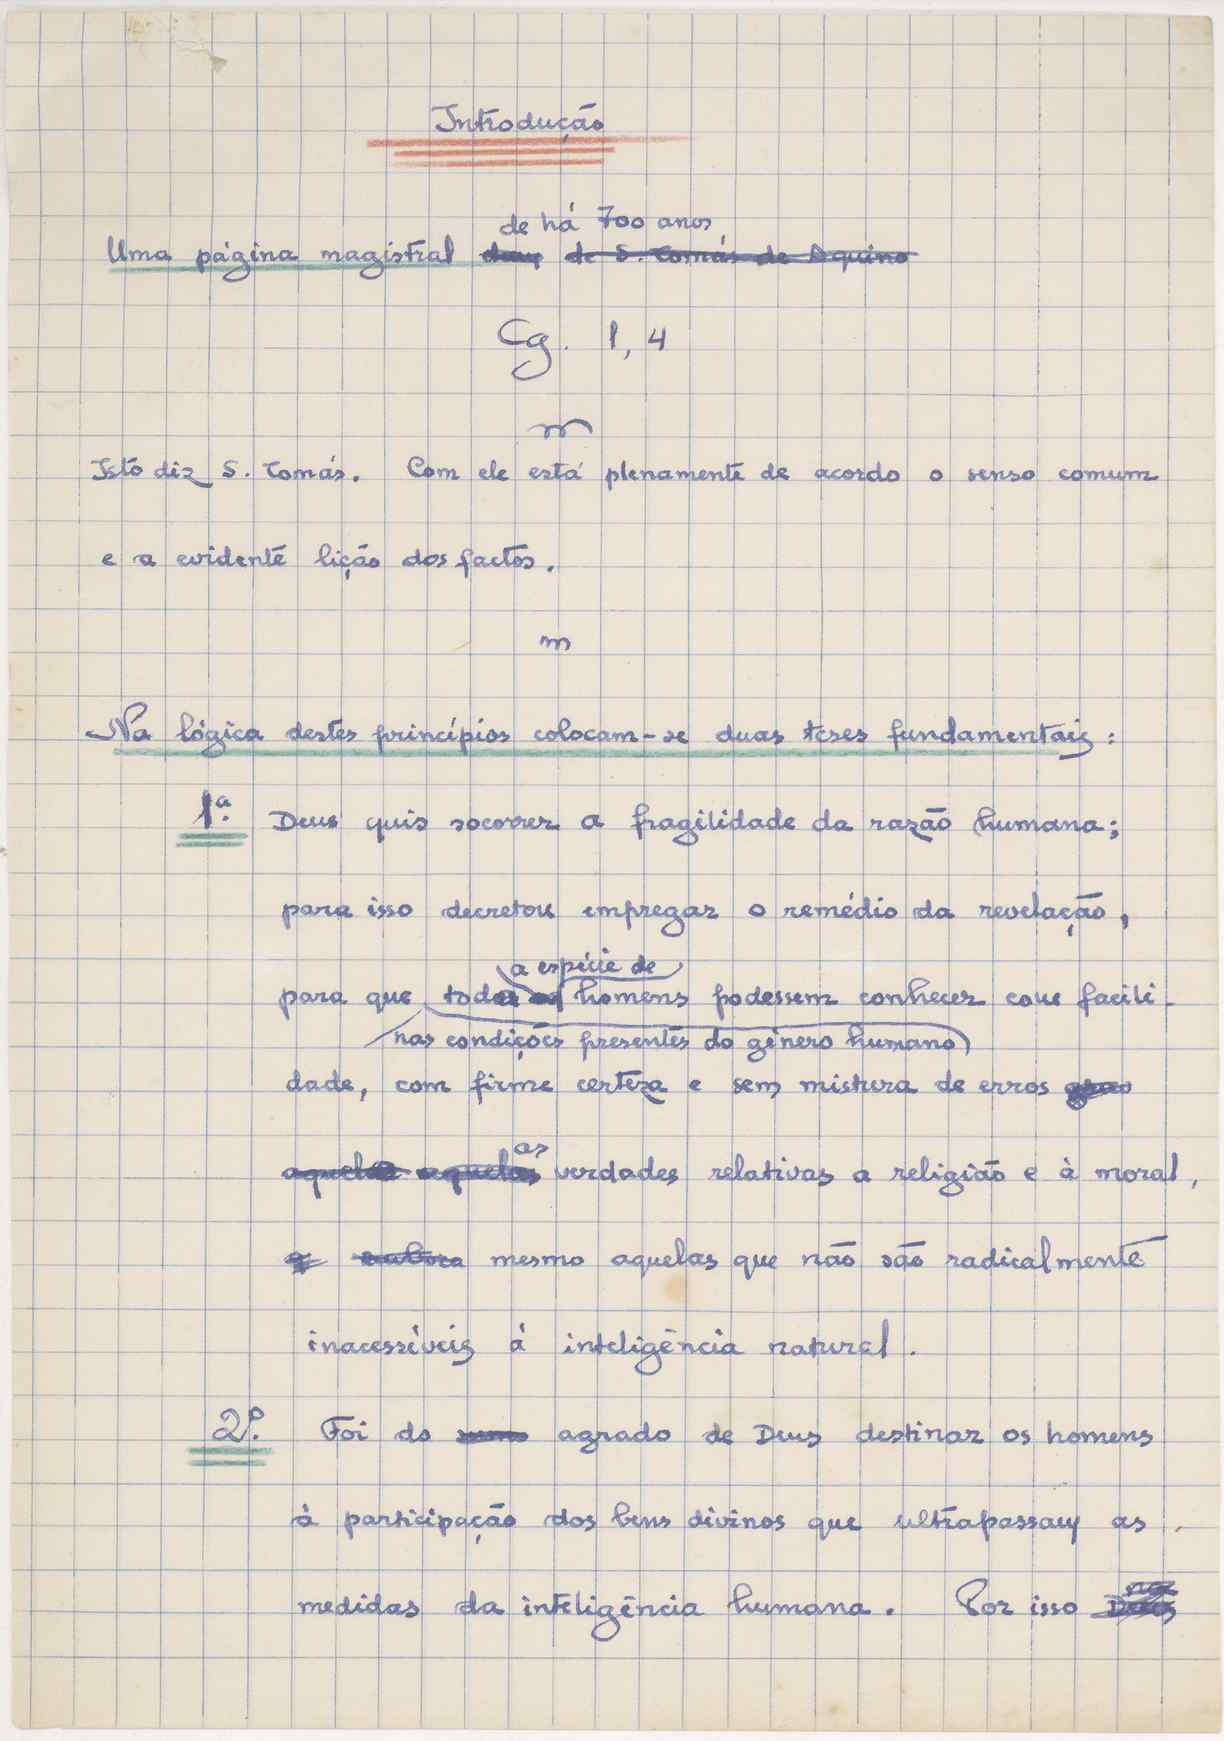 Introdução
de há 700 anos
Uma página magistral de S. Tomás de Aquino
Cg. 1, 4
Isto diz S. Tomás. Com ele está plenamente de acordo o senso comum
e a evidente lição dos factos.
Na lógica destes princípios colocam-se duas teses fundamentais:
1ª. Deus quis socorrer a fragilidade da razão humana;
para isso decretou empregar o remédio da revelação,
a espécie de
para que todos os homens podessem conhecer com facili-
nas condições presentes do género humano
dade, com firme certeza e sem mistura de erros
as
aquelas verdades relativas a religião e à moral,
embora mesmo aquelas que não são radicalmente
inacessíveis á inteligência natural.
2º. Foi do agrado de Deus destinar os homens
à participação dos bens divinos que ultrapassam as
medidas da inteligência humana. Por isso Deus